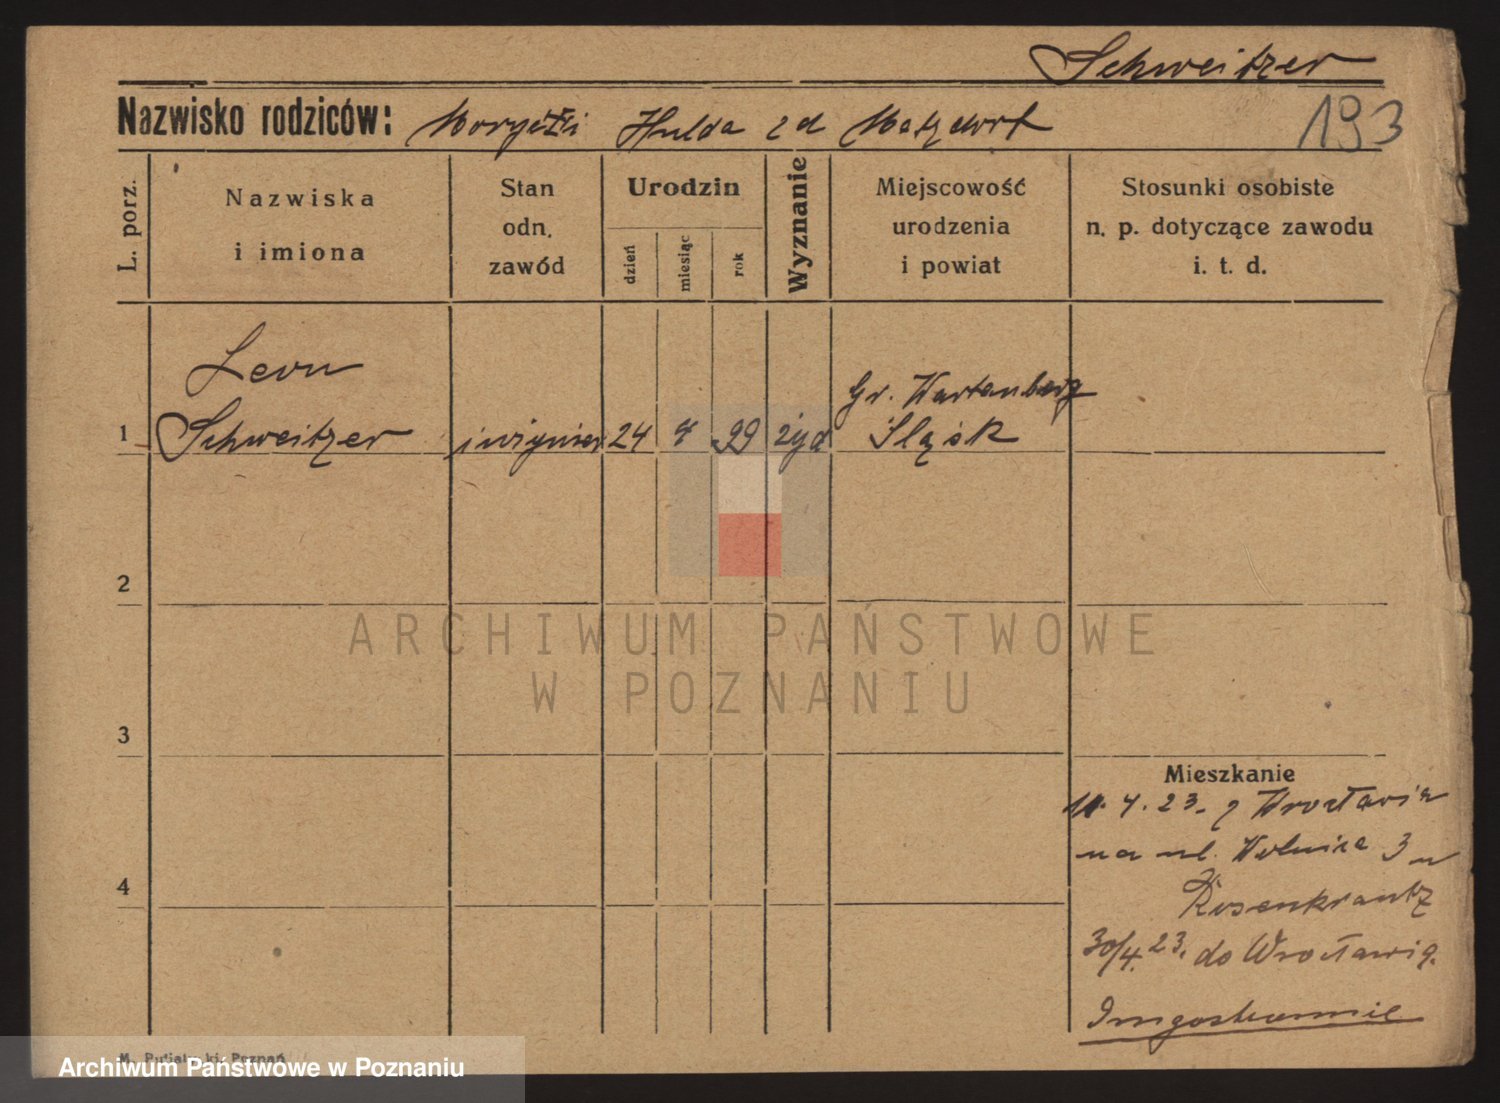 Schweitzer
Nazwisko rodziców: Hulda zd Matzdorf
193
L. porz.
Nazwiska
i imiona
Stan
odn.
zawód
Urodzin
dzień
miesiąc
rok
Wyznanie
Miejscowość
urodzenia
i powiat
Stosunki osobiste
n. p. dotyczące zawodu
i. t. d.
Leon
1 Schweitzer
inżynier
24
4
99
żyd
Gr. Wartenberg
Śląsk
2
ARCHIWUM PAŃSTWOWE
W POZNANIU
3
Mieszkanie
11. 4. 23. z Wrocławia
na ul. Wolnica 3 u
Rosenkrantz
4
30/4. 23. do Wrocławia.
Archiwum Państwowe w Poznaniu